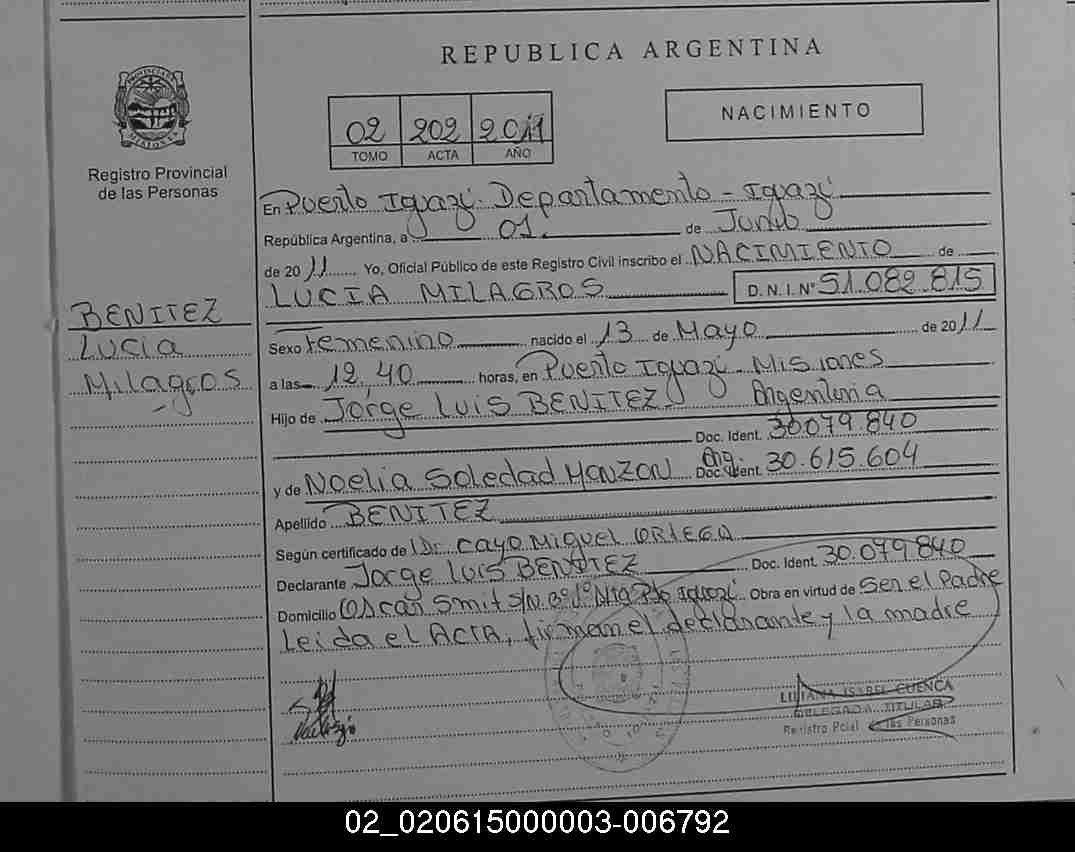 REPUBLICA ARGENTINA
NACIMIENTO
02 202 2011
TOMO ACTA AÑO
PROVINCIA DE MISIONES
Registro Provincial
de las Personas
BENITEZ
Lucia
Milagros
En Puerto Iguazú. Departamento - Iguazú
República Argentina, a 01. de Junio
de 2011 Yo, Oficial Público de este Registro Civil inscribo el NACIMIENTO de
LUCIA MILAGROS D.N.I.Nº 51.082.815
Sexo Femenino nacido el 13 de Mayo de 2011
a las 12.40 horas, en Puerto Iguazú - Misiones
Hijo de Jorge Luis BENITEZ Argentina
Doc. Ident. 30.079.840
y de Noelia Soledad MONZON Arg. Doc. Ident. 30.615.604
Apellido BENITEZ
Según certificado de Dr. Cayo Miguel ORTEGA
Declarante Jorge Luis BENITEZ Doc. Ident. 30.079.840
Domicilio Oscar Smit S/N Bº 1º Pto Iguazú Obra en virtud de Ser el Padre
Leida el ACTA, firman el declarante y la madre
LILIANA ISABEL CUENCA
DELEGADA TITULAR
Registro Pcial de las Personas
02_020615000003-006792